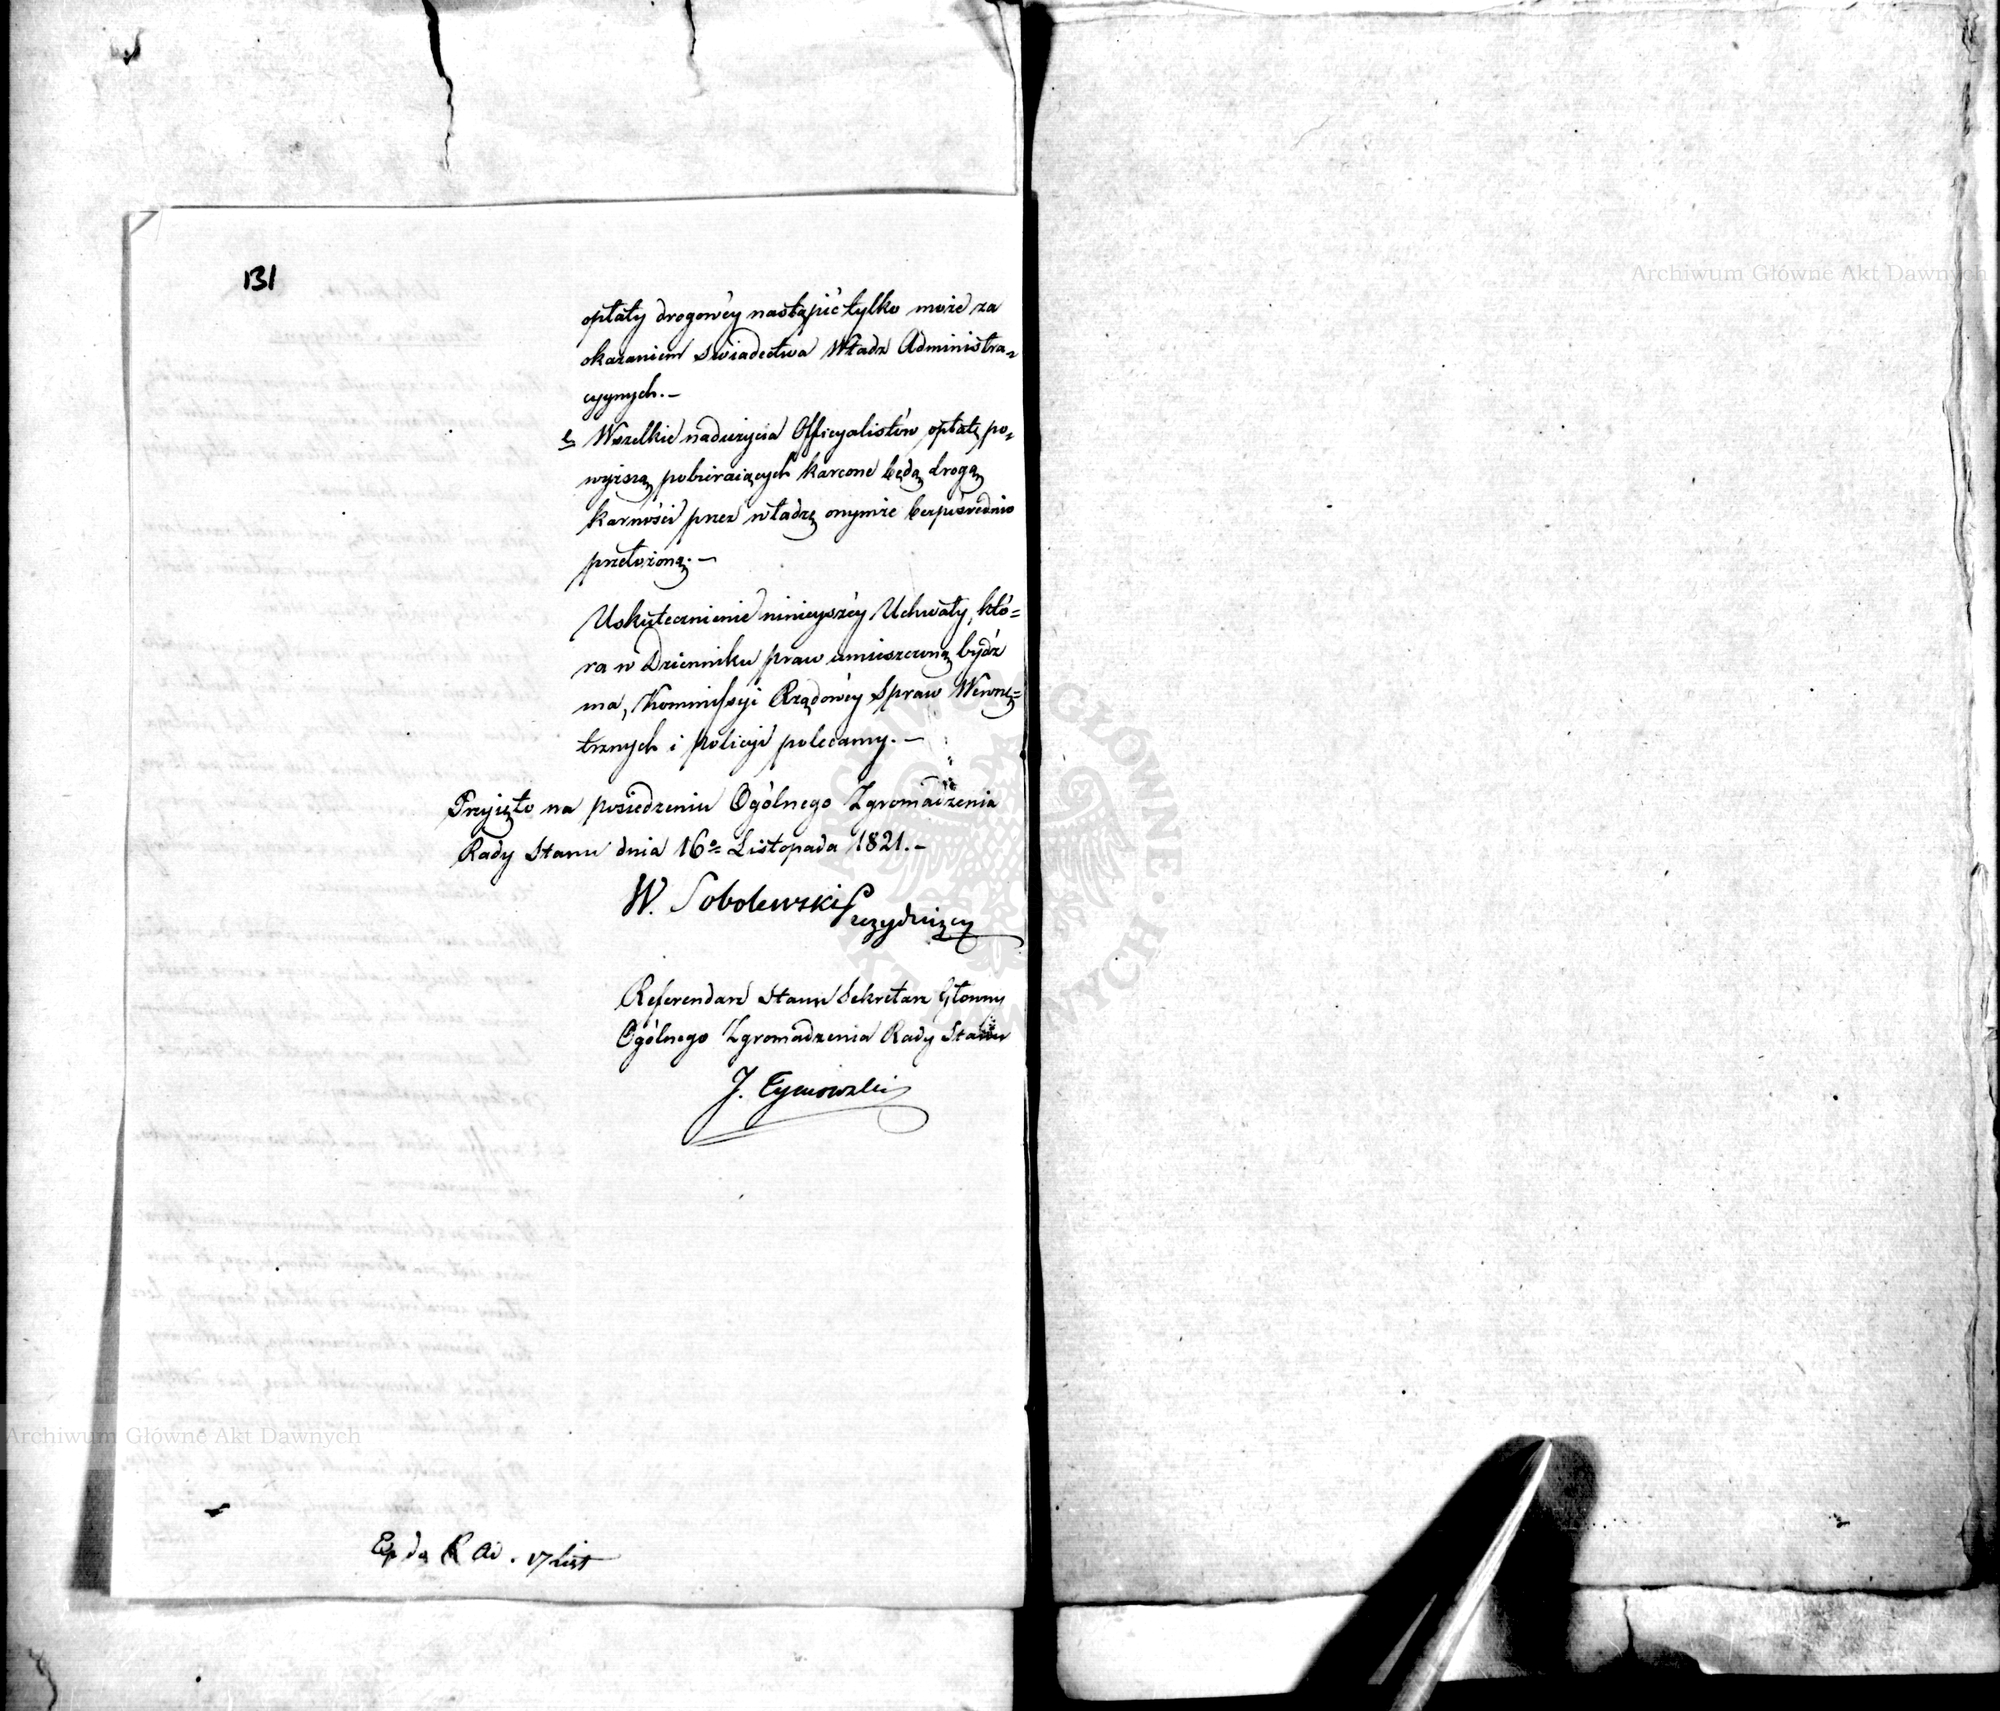 131
opłaty drogowéy nastąpić tylko może za
okazaniem swiadectwa Władz Administra-
cyynych.-
Wszelkie nadużycia Officyalistów, opłatę po-
wyższą pobieraiących karcone będą drogą
karności przez władzę onymże bezpośrednio
przełożoną.-
Uskutecznienie ninieyszéy Uchwały, któ=
ra w Dzienniku praw umieszczoną bydź
ma, Kommissyi Rządowéy Spraw Wewnę=
trznych i Policyi polecamy.-
Przyięto na posiedzeniu Ogólnego Zgromadzenia
Rady Stanu dnia 16º Listopada 1821.-
W. Sobolewski Prezyduiący
Referendarz Stanu Sekretarz Głowny
Ogólnego Zgromadzenia Rady Stanu
J. Tymowski
17 List
Archiwum Główne Akt Dawnych
Archiwum Główne Akt Dawnych
ARCHIWUM GŁÓWNE AKT DAWNYCH